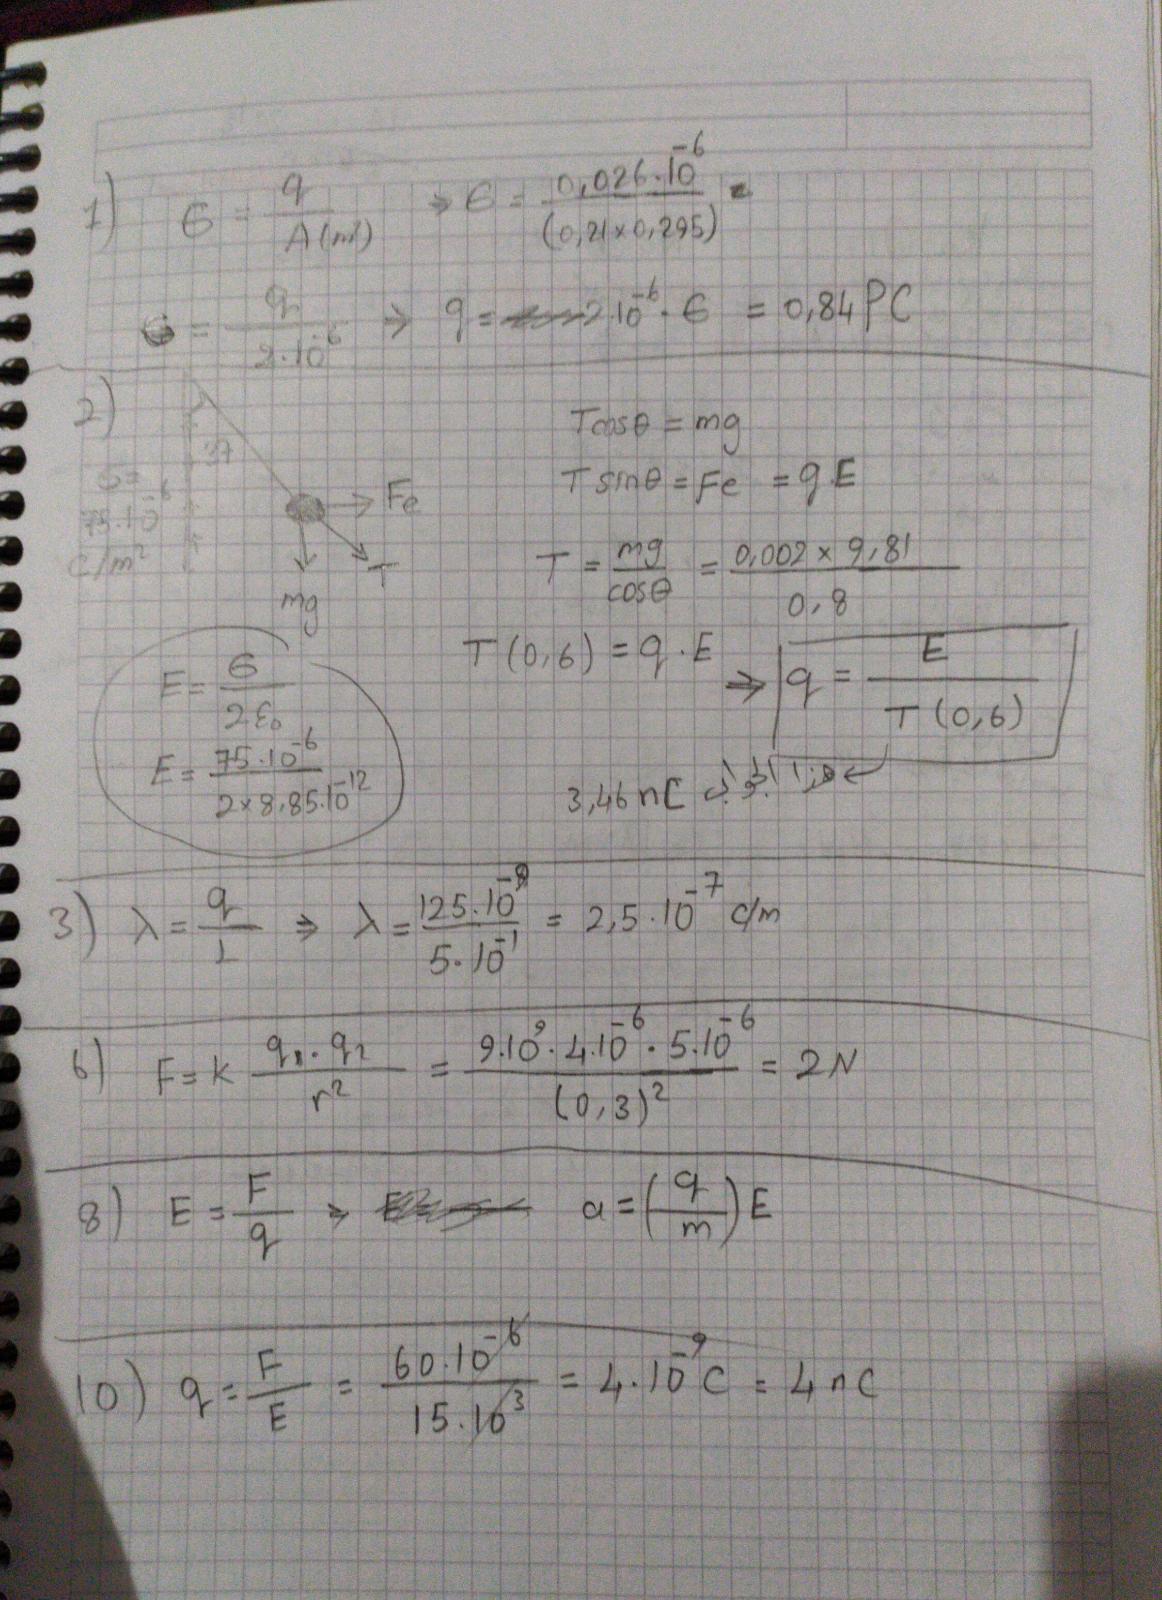 1) σ = q / A(m²) ⇒ σ = 0,026·10⁻⁶ / (0,21×0,295) =
σ = q / 2·10⁻⁶ ⇒ q = 2·10⁻⁶·σ = 0,84 PC
2)
37
σ=
75·10⁻⁶
C/m²
Fe
T
mg
Tcosθ = mg
T sinθ = Fe = qE
T = mg / cosθ = 0,002 × 9,81 / 0,8
T(0,6) = q·E ⇒ q = E / T(0,6)
E = σ / 2ε₀
E = 75·10⁻⁶ / 2×8,85·10⁻¹²
3,46 nC
3) λ = q / L ⇒ λ = 125·10⁻⁹ / 5·10⁻¹ = 2,5·10⁻⁷ c/m
6) F = k q₁·q₂ / r² = 9·10⁹·4·10⁻⁶·5·10⁻⁶ / (0,3)² = 2N
8) E = F / q ⇒ a = (q / m) E
10) q = F / E = 60·10⁻⁶ / 15·10³ = 4·10⁻⁹ C = 4 nC